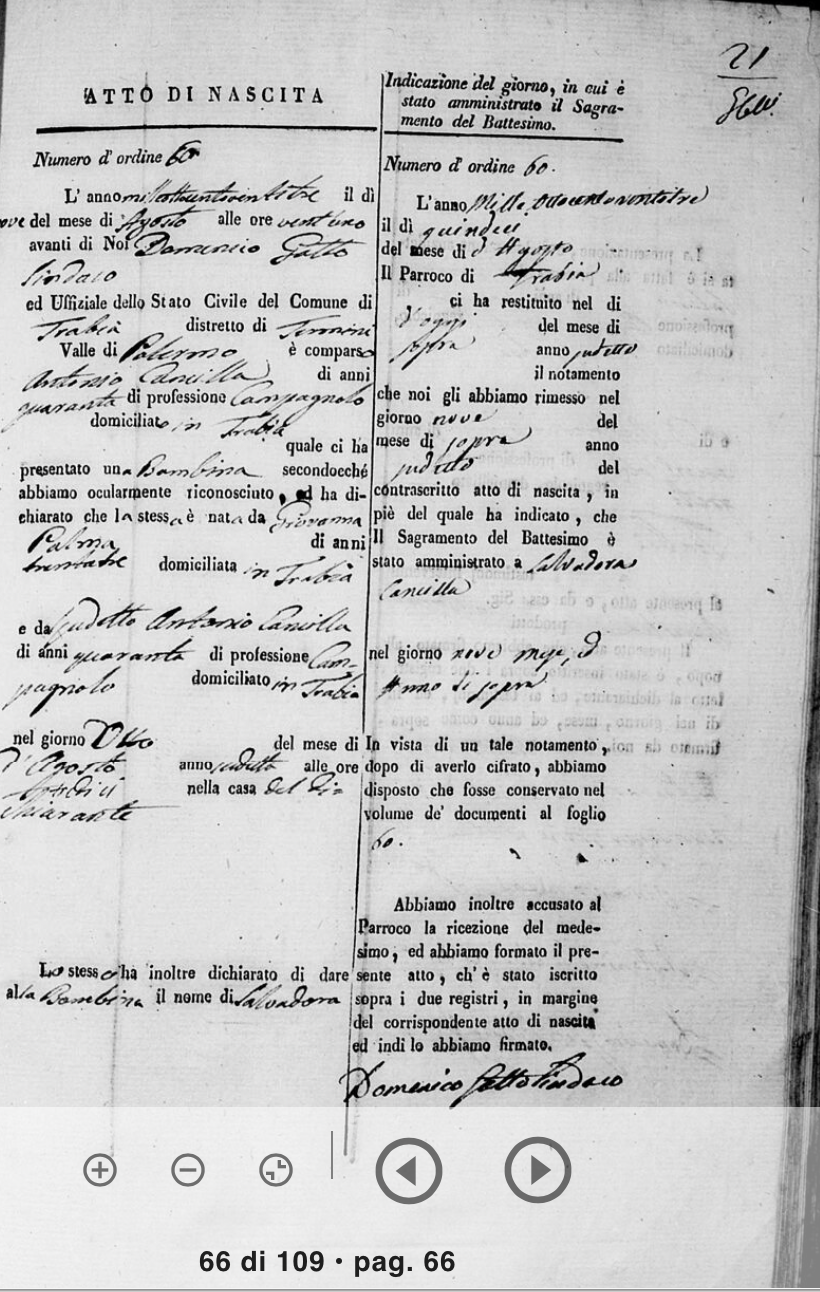 21
ATTO DI NASCITA
Numero d' ordine 60
L' anno milleottocentoventitre il dì
nove del mese di Agosto alle ore ventuno
avanti di Noi Domenico Gatto
Sindaco
ed Uffiziale dello Stato Civile del Comune di
Trabia distretto di Termini
Valle di Palermo è comparso
Antonio Cancilla di anni
quaranta di professione Campagnolo
domiciliato in Trabia
quale ci ha
presentato una Bambina secondocché
abbiamo ocularmente riconosciuto, ed ha di-
chiarato che la stessa è nata da Giovanna
Palma di anni
trentatre domiciliata in Trabia
e da sudetto Antonio Cancilla
di anni quaranta di professione Cam-
pagnolo domiciliato in Trabia
nel giorno Otto del mese di
d' Agosto anno sudetto alle ore
nella casa del di-
chiarante
Lo stesso ha inoltre dichiarato di dare
alla Bambina il nome di Salvadora
Indicazione del giorno, in cui è
stato amministrato il Sagra-
mento del Battesimo.
Numero d' ordine 60.
L'anno Mille Ottocento ventitre
il dì quindeci
del mese di d' Agosto
Il Parroco di Trabia
ci ha restituito nel di
del mese di
sopra anno sudetto
il notamento
che noi gli abbiamo rimesso nel
giorno nove del
mese di sopra anno
sudetto del
contrascritto atto di nascita, in
piè del quale ha indicato, che
Il Sagramento del Battesimo è
stato amministrato a Salvadora
Cancilla
nel giorno nove mese, ed
Anno di sopra
In vista di un tale notamento,
dopo di averlo cifrato, abbiamo
disposto che fosse conservato nel
volume de' documenti al foglio
60.
Abbiamo inoltre accusato al
Parroco la ricezione del mede-
simo, ed abbiamo formato il pre-
sente atto, ch' è stato iscritto
sopra i due registri, in margine
del corrispondente atto di nascita
ed indi lo abbiamo firmato.
Domenico Gatto Sindaco
66 di 109 • pag. 66